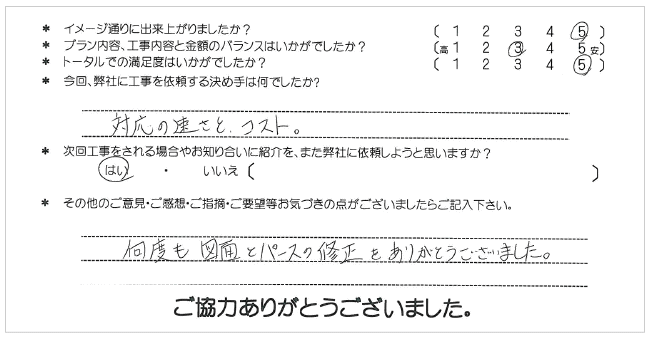 * イメージ通りに出来上がりましたか? ( 1 2 3 4 5 )
* プラン内容、工事内容と金額のバランスはいかがでしたか? (高 1 2 3 4 5 安)
* トータルでの満足度はいかがでしたか? ( 1 2 3 4 5 )
* 今回、弊社に工事を依頼する決め手は何でしたか?
対応の速さと、コスト。
* 次回工事をされる場合やお知り合いに紹介を、また弊社に依頼しようと思いますか?
はい ・ いいえ ( )
* その他のご意見・ご感想・ご指摘・ご要望等お気づきの点がございましたらご記入下さい。
何度も図面とパースの修正をありがとうございました。
ご協力ありがとうございました。